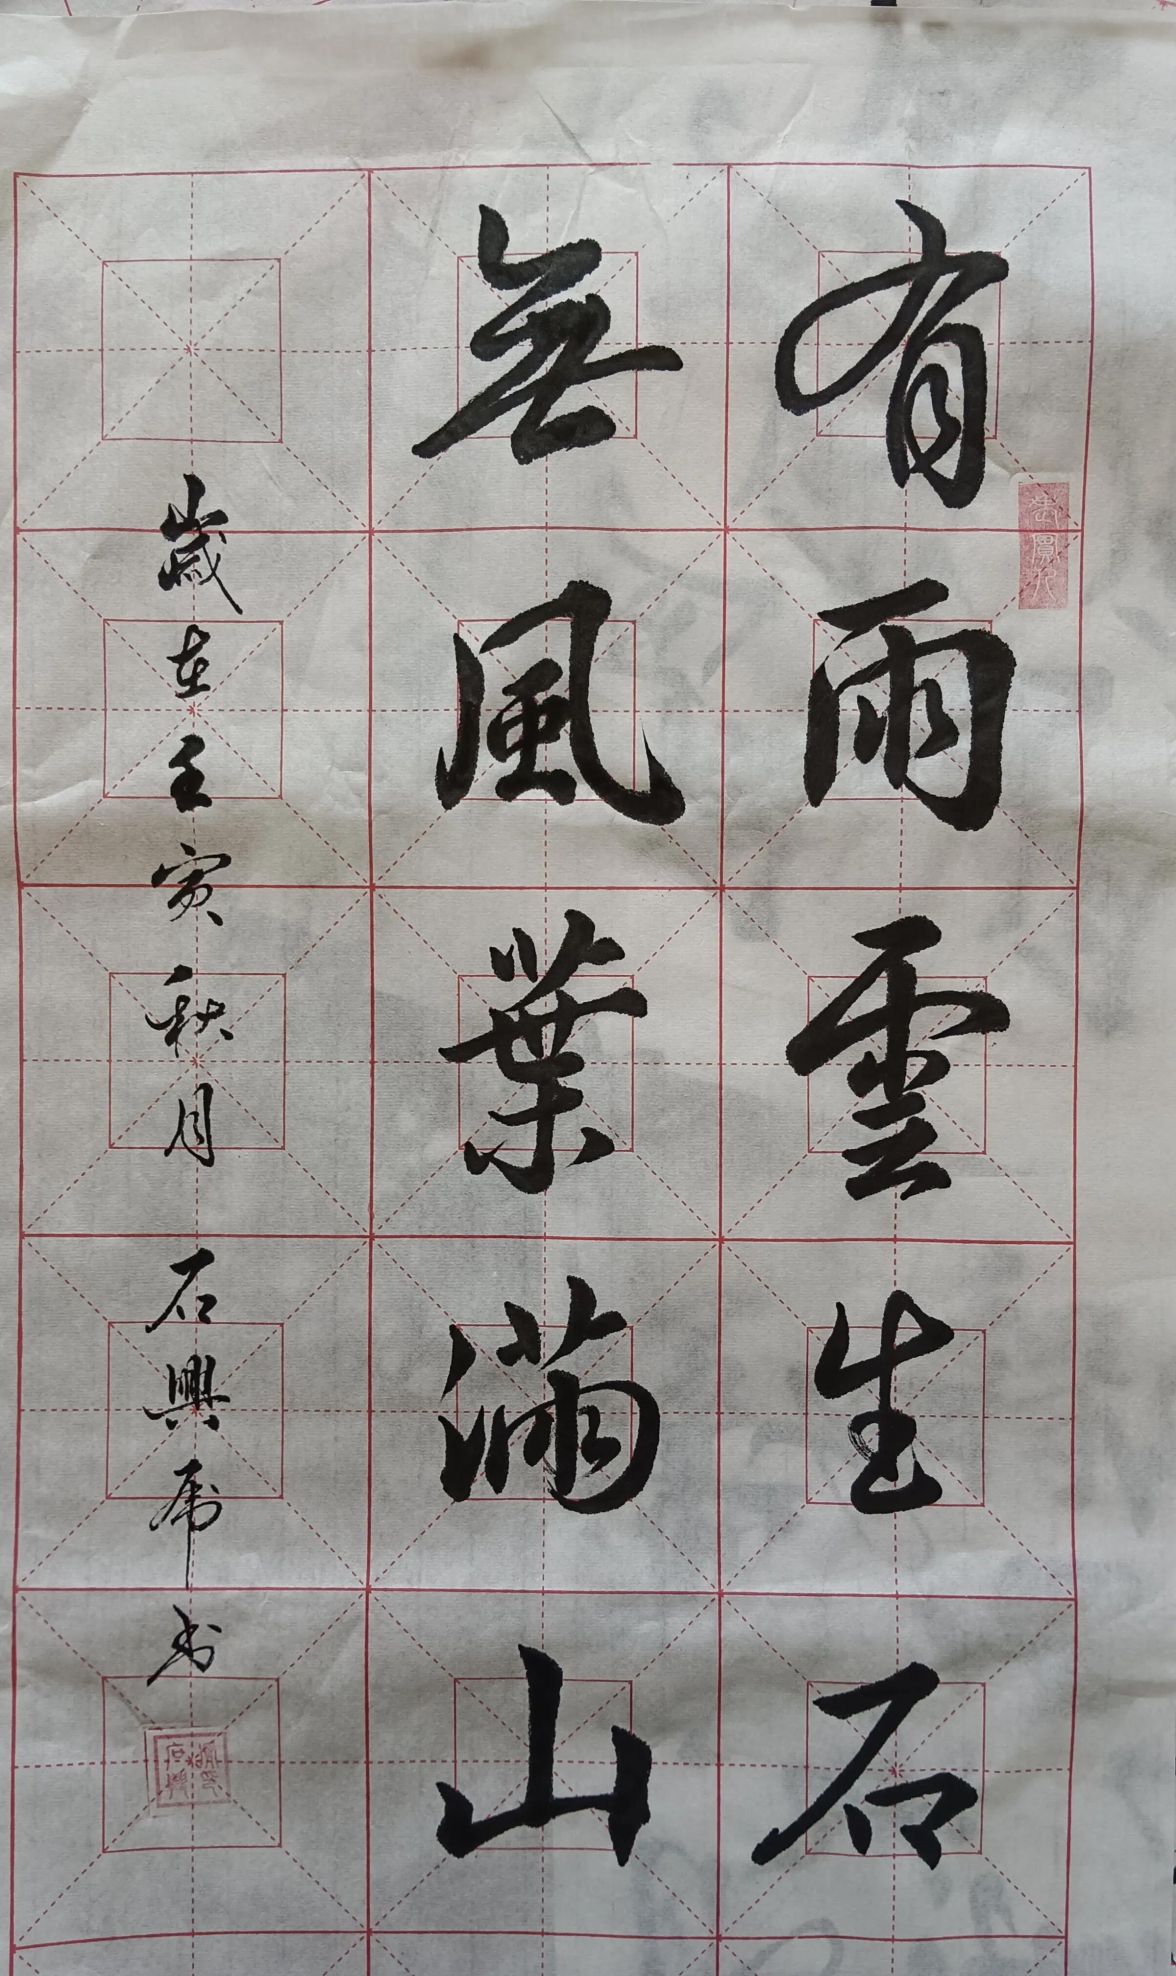 有雨雲生石
無風葉滿山
歲在壬寅秋月 石興虎书